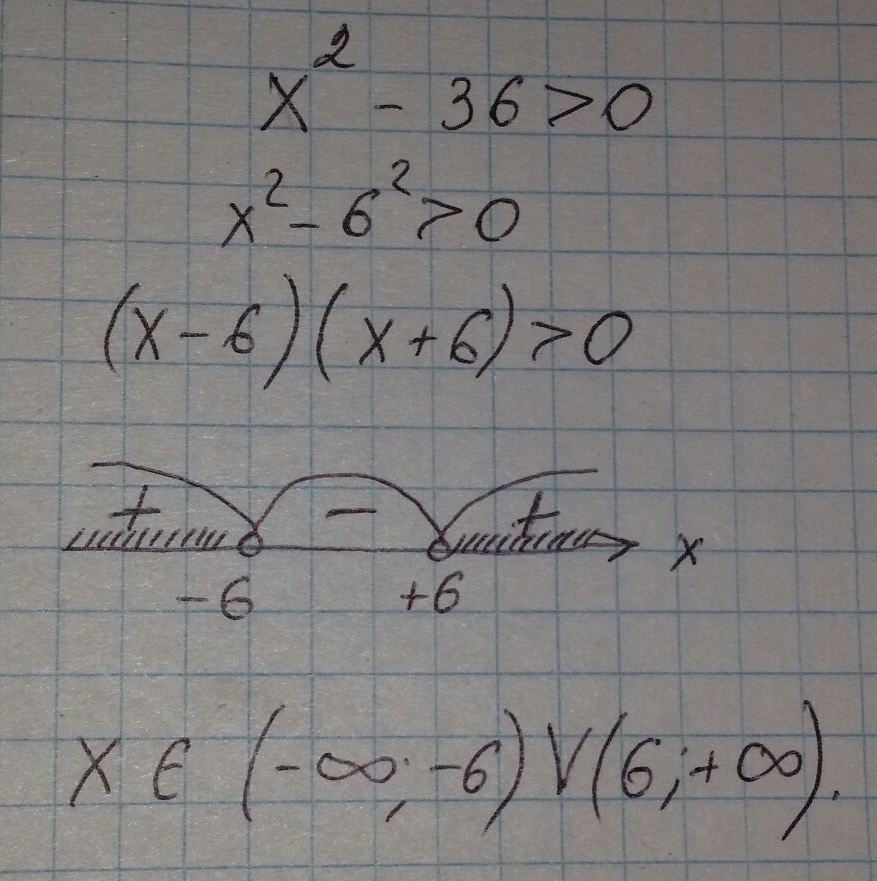 x² - 36 > 0
x² - 6² > 0
(x - 6)(x + 6) > 0
+ - +
-6 +6 x
x ∈ (-∞; -6) V (6; +∞).